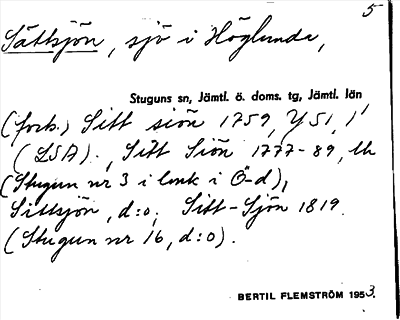 5
Sättsjön, sjö i Höglunda,
Stuguns sn, Jämtl. ö. doms. tg, Jämtl. län
(fork.) Sitt siön 1759, Y51, 1'
(LSA). Sitt Siön 1777-89, lh
(Stugun nr 3 i lmk i Ö-d),
Sittsjön, d:o, Sitt-Sjön 1819.
(Stugun nr 16, d:o).
BERTIL FLEMSTRÖM 1953.